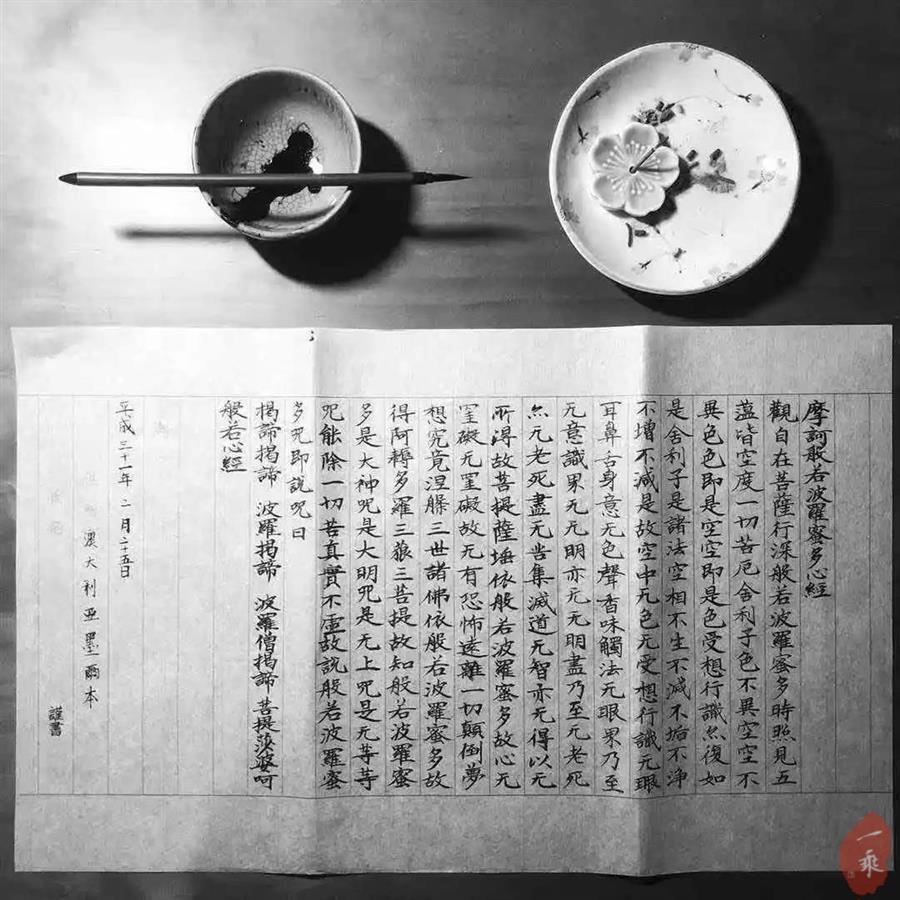 摩訶般若波羅蜜多心經
觀自在菩薩行深般若波羅蜜多時照見五
蘊皆空度一切苦厄舍利子色不異空空不
異色色即是空空即是色受想行識亦復如
是舍利子是諸法空相不生不滅不垢不淨
不增不減是故空中无色无受想行識无眼
耳鼻舌身意无色聲香味觸法无眼界乃至
无意識界无无明亦无无明盡乃至无老死
亦无老死盡无苦集滅道无智亦无得以无
所得故菩提薩埵依般若波羅蜜多故心无
罣礙无罣礙故无有恐怖遠離一切顛倒夢
想究竟涅槃三世諸佛依般若波羅蜜多故
得阿耨多羅三藐三菩提故知般若波羅蜜
多是大神呪是大明呪是无上呪是无等等
呪能除一切苦真實不虛故說般若波羅蜜
多呪即說呪曰
揭諦揭諦 波羅揭諦 波羅僧揭諦 菩提莎婆呵
般若心經
平成三十一年二月二十五日
澳大利亞墨爾本
謹書
一乘